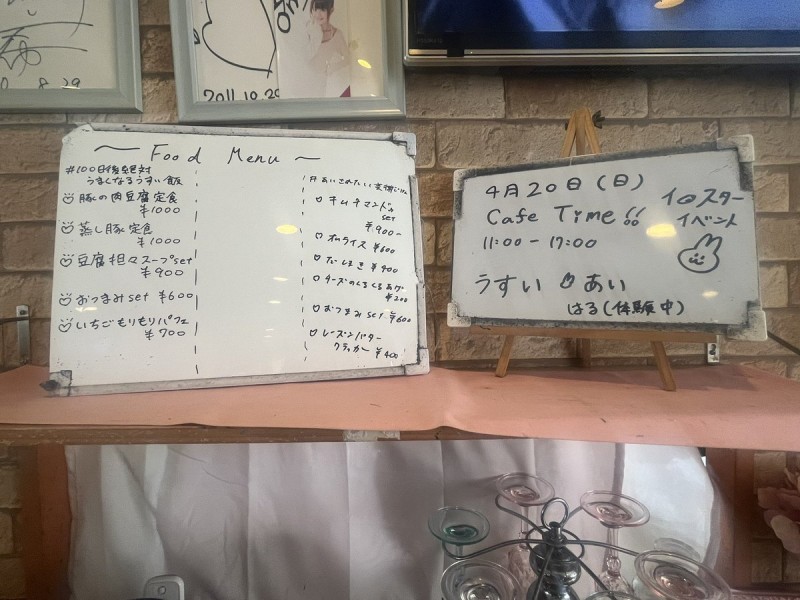 8.29
2011.10.29
Food Menu
#100日後絶対
うまくなるうすい飯
豚の肉豆腐定食
¥1000
蒸し豚定食
¥1000
豆腐担々スープset
¥900
おつまみset ¥600
いちごもりもりパフェ
¥700
キムチマンドゥ
set
¥900-
オムライス ¥600
だしまき ¥400
チーズのくるくるあげ
¥200
おつまみset ¥600
レーズンバター
クラッカー ¥400
4月20日(日)
Cafe Time!!
11:00-17:00
イロスター
イベント
うすい あい
はる(体験中)